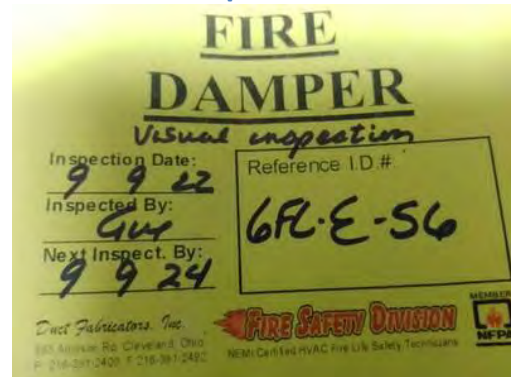 FIRE
DAMPER
Visual inspection
Inspection Date:
9 9 22
Inspected By:
Next Inspect. By:
9 9 24
Reference I.D.#
6FL-E-56
Duct Fabricators, Inc.
Rd. Cleveland, Ohio
FIRE SAFETY DIVISION
NEMI Certified HVAC Fire Life Safety Technicians
MEMBER
NFPA